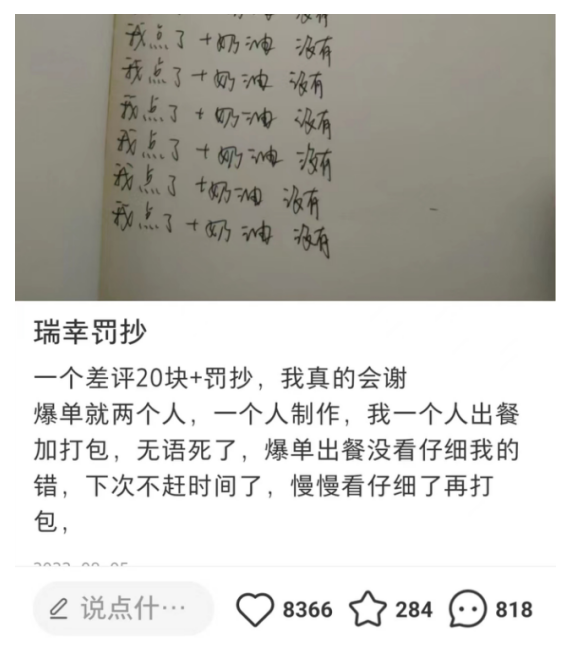 我点了 +奶油 没有
我点了 +奶油 没有
我点了 +奶油 没有
我点了 +奶油 没有
我点了 +奶油 没有
我点了 +奶油 没有
瑞幸罚抄
一个差评20块+罚抄，我真的会谢
爆单就两个人，一个人制作，我一个人出餐
加打包，无语死了，爆单出餐没看仔细我的
错，下次不赶时间了，慢慢看仔细了再打
包，
说点什… 8366 284 818